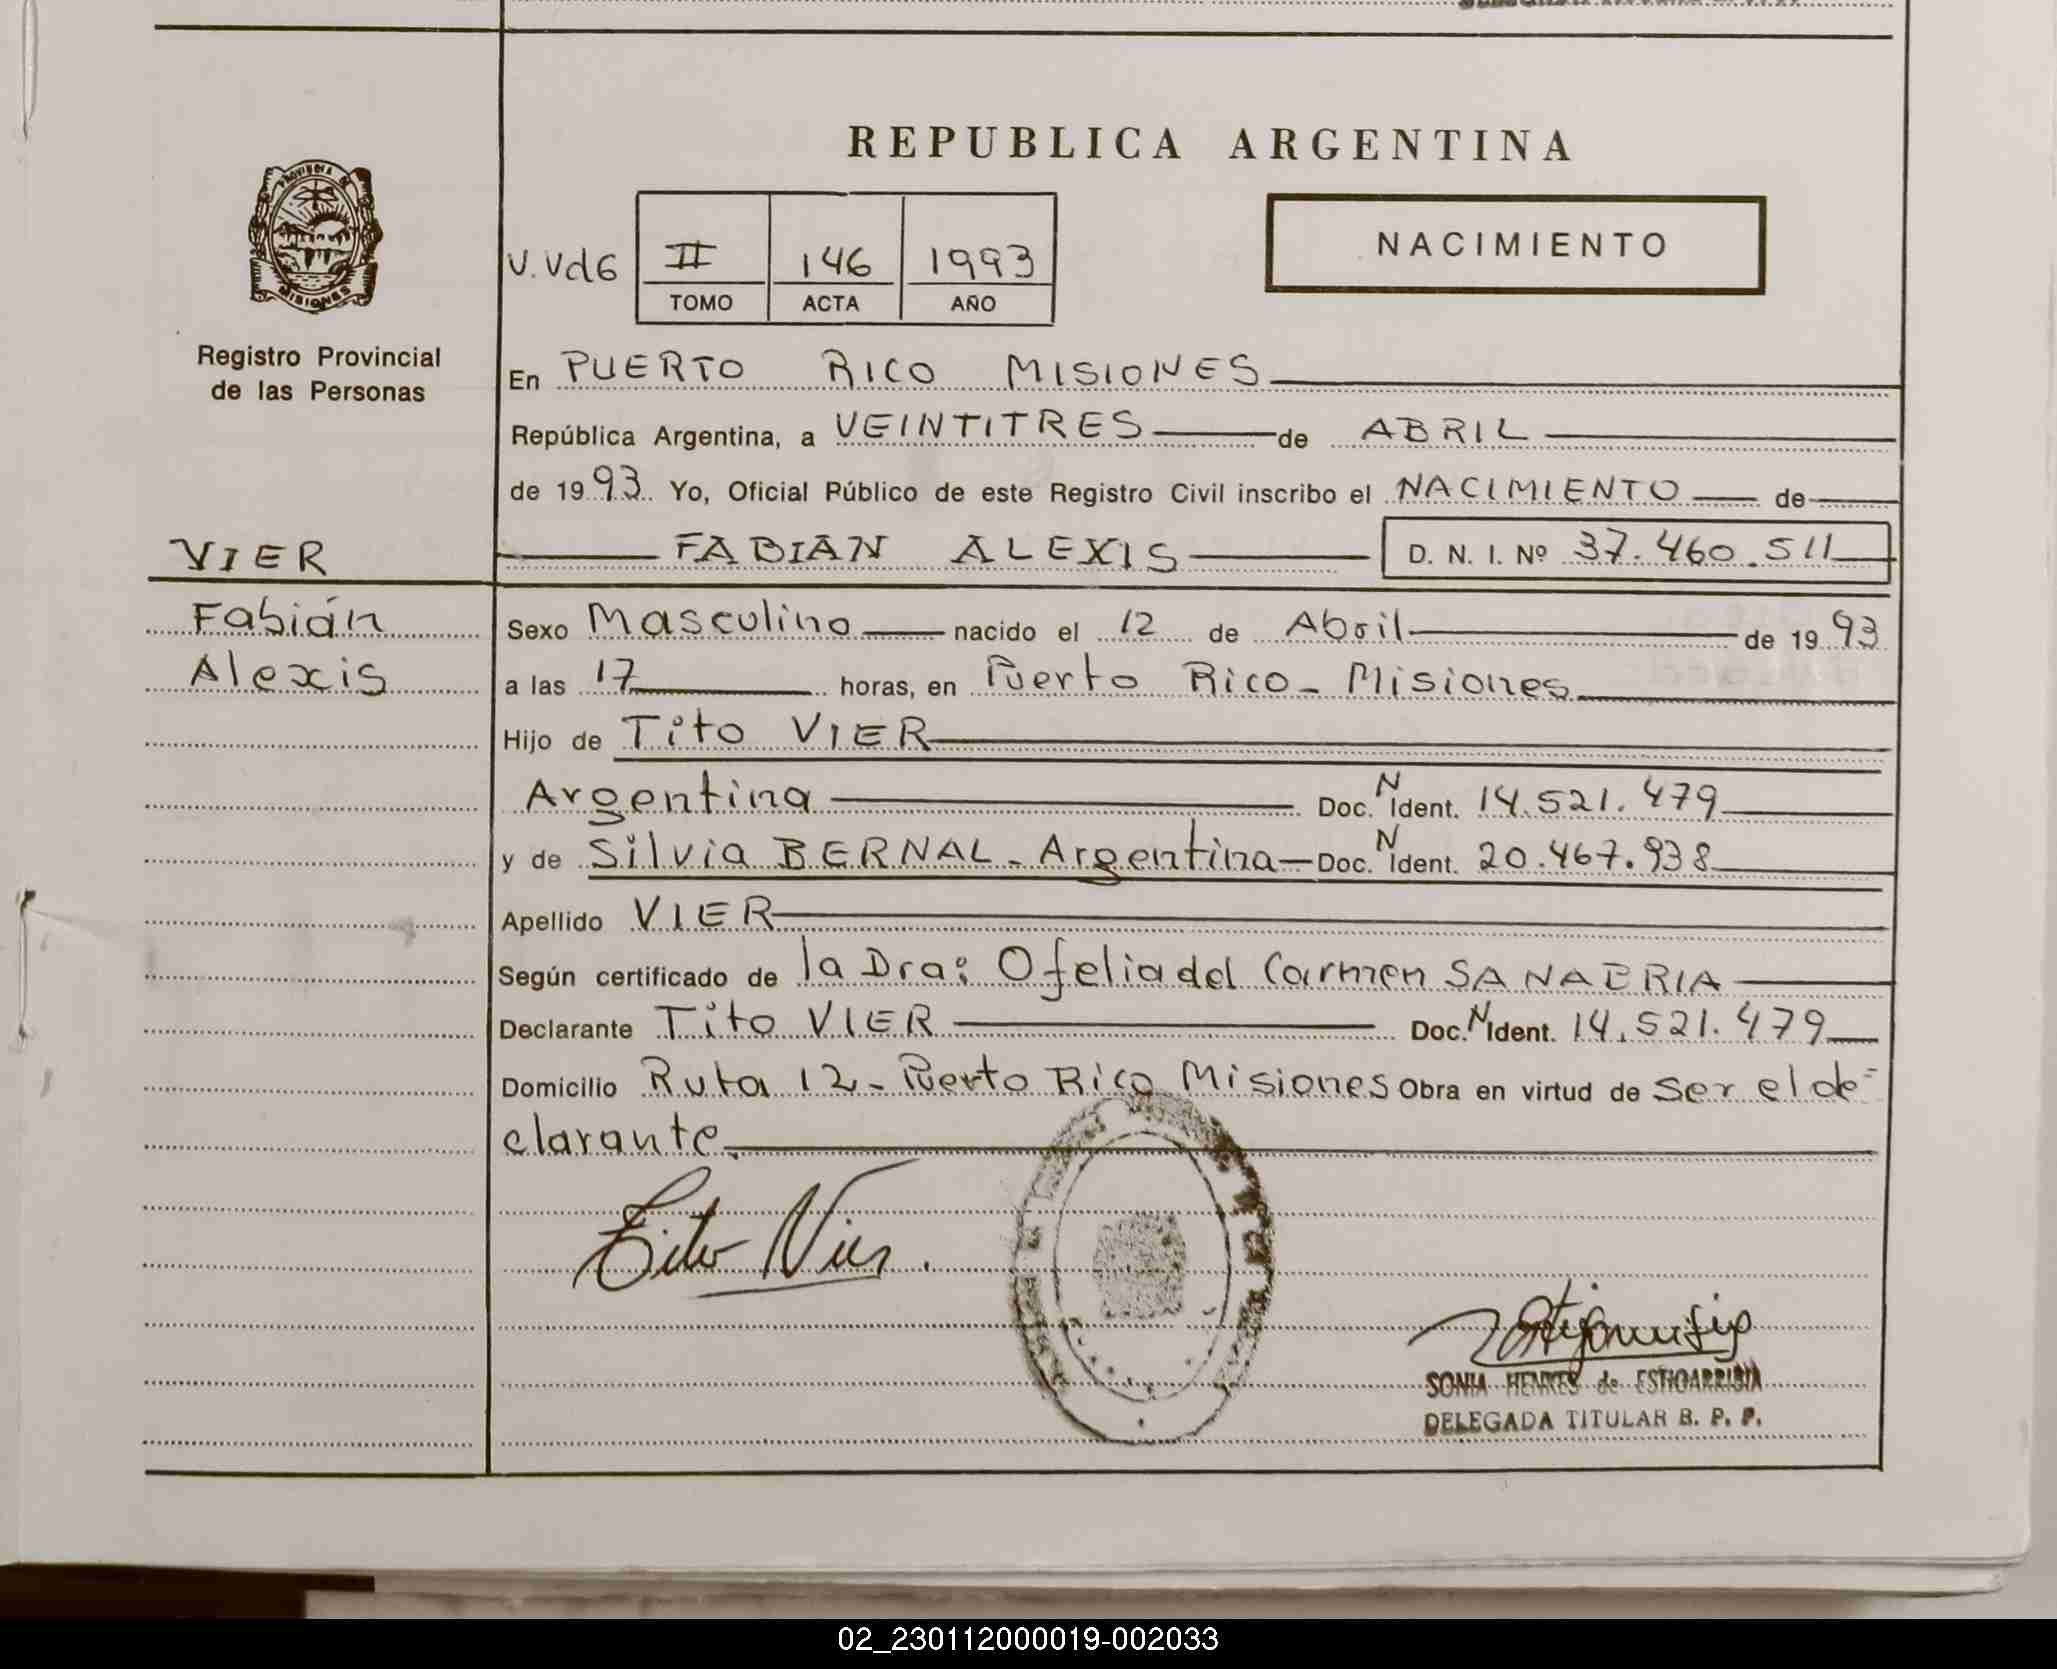 REPUBLICA ARGENTINA
PROVINCIA DE
MISIONES
Registro Provincial
de las Personas
V.Vd6
II 146 1993
TOMO ACTA AÑO
NACIMIENTO
En PUERTO RICO MISIONES
República Argentina, a VEINTITRES de ABRIL
de 1993 Yo, Oficial Público de este Registro Civil inscribo el NACIMIENTO de
VIER
FABIAN ALEXIS D. N. I. Nº 37.460.511
Fabián
Alexis
Sexo Masculino nacido el 12 de Abril de 1993
a las 17 horas, en Puerto Rico - Misiones
Hijo de Tito VIER
Argentina Doc. N Ident. 14.521.479
y de Silvia BERNAL - Argentina Doc. N Ident. 20.467.938
Apellido VIER
Según certificado de la Dra: Ofelia del Carmen SANABRIA
Declarante Tito VIER Doc. N Ident. 14.521.479
Domicilio Ruta 12 - Puerto Rico Misiones Obra en virtud de ser el de=
clarante.
Tito Vier.
SONIA HENKES de
DELEGADA TITULAR R. P. P.
02_230112000019-002033